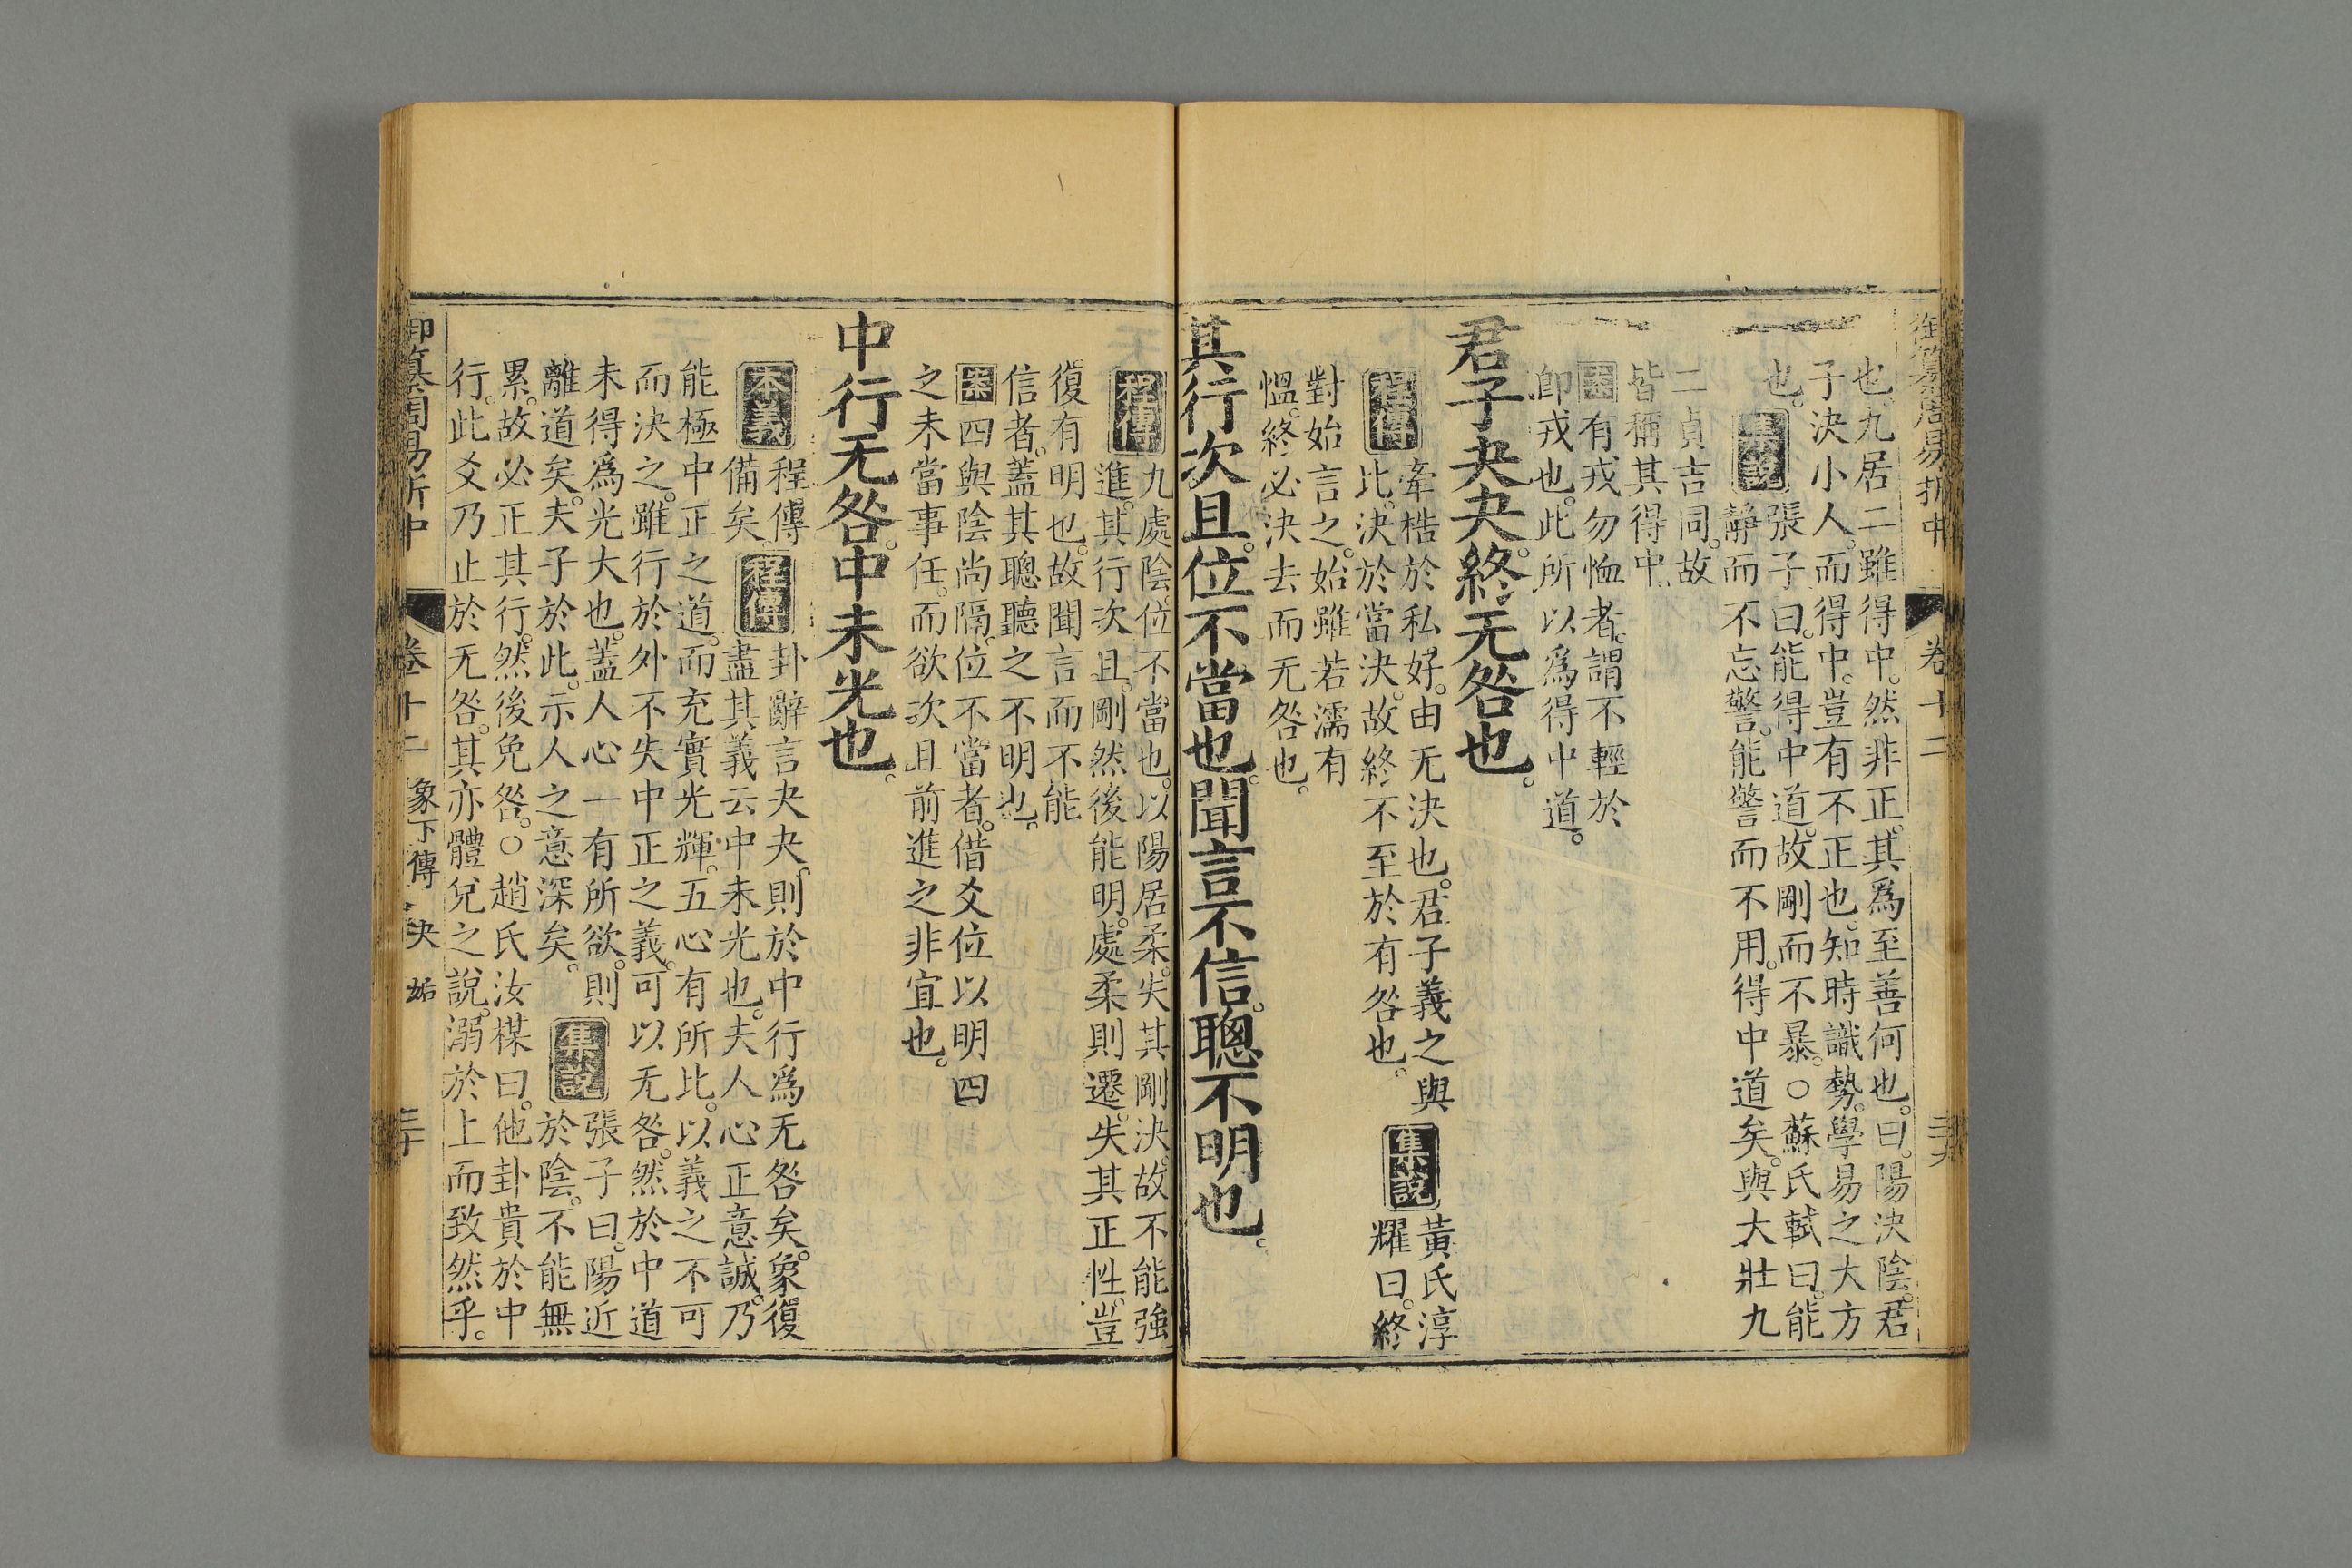 御纂周易折中
卷十二
也九居二雖得中。然非正。其爲至善何也。曰。陽決陰。君
子決小人。而得中。豈有不正也。知時識勢。學易之大方
也。
集說
張子曰。能得中道。故剛而不暴。○蘇氏軾曰。能
靜而不忘警。能警而不用。得中道矣。與大壯九
二貞吉同。故
皆稱其得中。
案有戎勿恤者。謂不輕於
卽戎也。此所以爲得中道。
君子夬夬。終无咎也。
程傳
牽梏於私好。由无決也。君子義之與
比。決於當決。故終不至於有咎也。
集說
黃氏淳
耀曰。終
對始言之。始雖若濡有
慍。終必決去而无咎也。
其行次且。位不當也。聞言不信。聰不明也。
程傳
九處陰。位不當也。以陽居柔。失其剛決。故不能強
進。其行次且。剛然後能明。處柔則遷。失其正性。豈
復有明也。故聞言而不能
信者。蓋其聰聽之不明也。
案四與陰尚隔。位不當者。借爻位以明四
之未當事任。而欲次且前進之非宜也。
中行无咎。中未光也。
本義
程傳
備矣。
程傳
卦辭言夬夬。則於中行爲无咎矣。象復
盡其義云中未光也。夫人心正意誠。乃
能極中正之道。而充實光輝。五心有所比。以義之不可
而決之。雖行於外不失中正之義。可以无咎。然於中道
未得爲光大也。蓋人心一有所欲。則
離道矣。夫子於此。示人之意深矣。
集說
張子曰。陽近
於陰。不能無
累。故必正其行。然後免咎。○趙氏汝楳曰。他卦貴於中
行。此爻乃止於无咎。其亦體兌之說。溺於上而致然乎。
御纂周易折中
卷十二
象下傳
夬
姤
三十